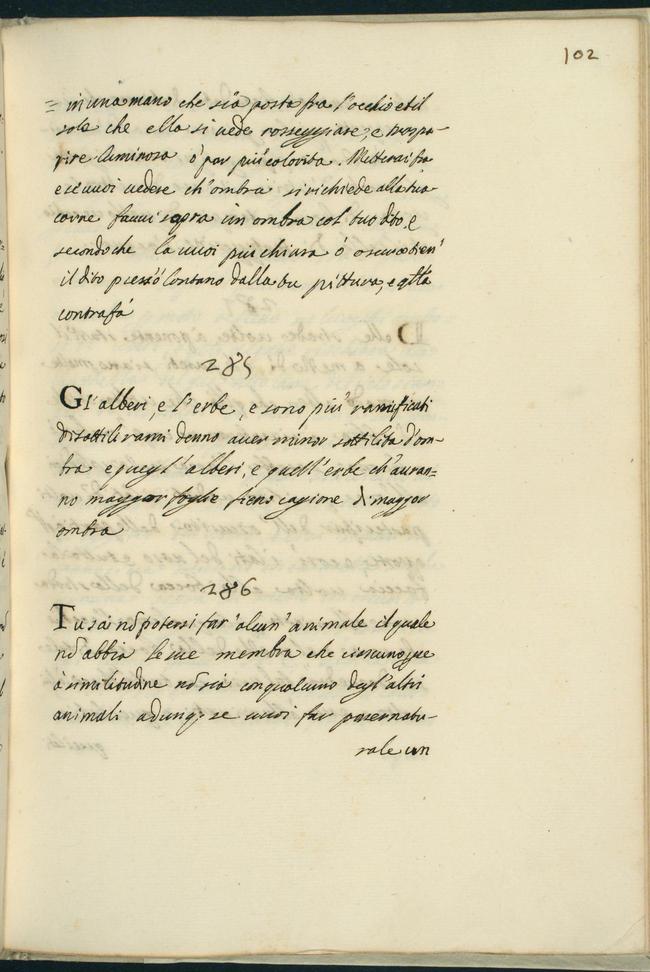 102
= in una mano che sia posta fra l'occhio et il
sole che ella si vede rosseggiare, e traspa-
rire luminosa ó par piú colorita. Metterai fra
e se vuoi vedere ch'ombra si richiede alla tua
carne favvi sopra un ombra col tuo dito, e
secondo che la vuoi piu chiara ó oscura tien'
il dito presso ó lontano dalla tu pittura, e qlla
contrafá
285
Gl'alberi, e l'erbe, e sono piú ramificati
di sottili rami denno aver minor sottilita d'om-
bra e quegl'alberi, e quell'erbe ch'auran=
no maggior foglie fieno cagione di maggior
ombra
286
Tu sai nō potersi far alcun'animale il quale
nō abbia le sue membra che ciascuno
á similitudine nō sia con qualcuno degl'altri
animali adunq; se vuoi far parer natu-
rale un